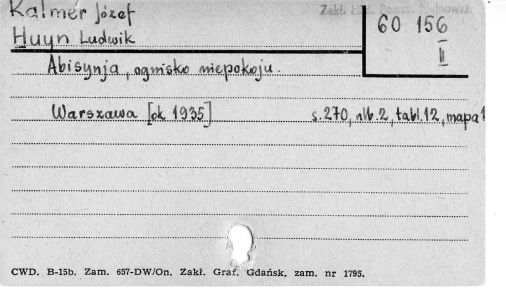 Kalmer Józef
Huyn Ludwik
60 156
II
Abisynja, ognisko niepokoju.
Warszawa [ok 1935] s.270, nlb.2, tabl.12, mapa 1
CWD. B-15b. Zam. 657-DW/On. Zakł. Graf. Gdańsk, zam. nr 1795.